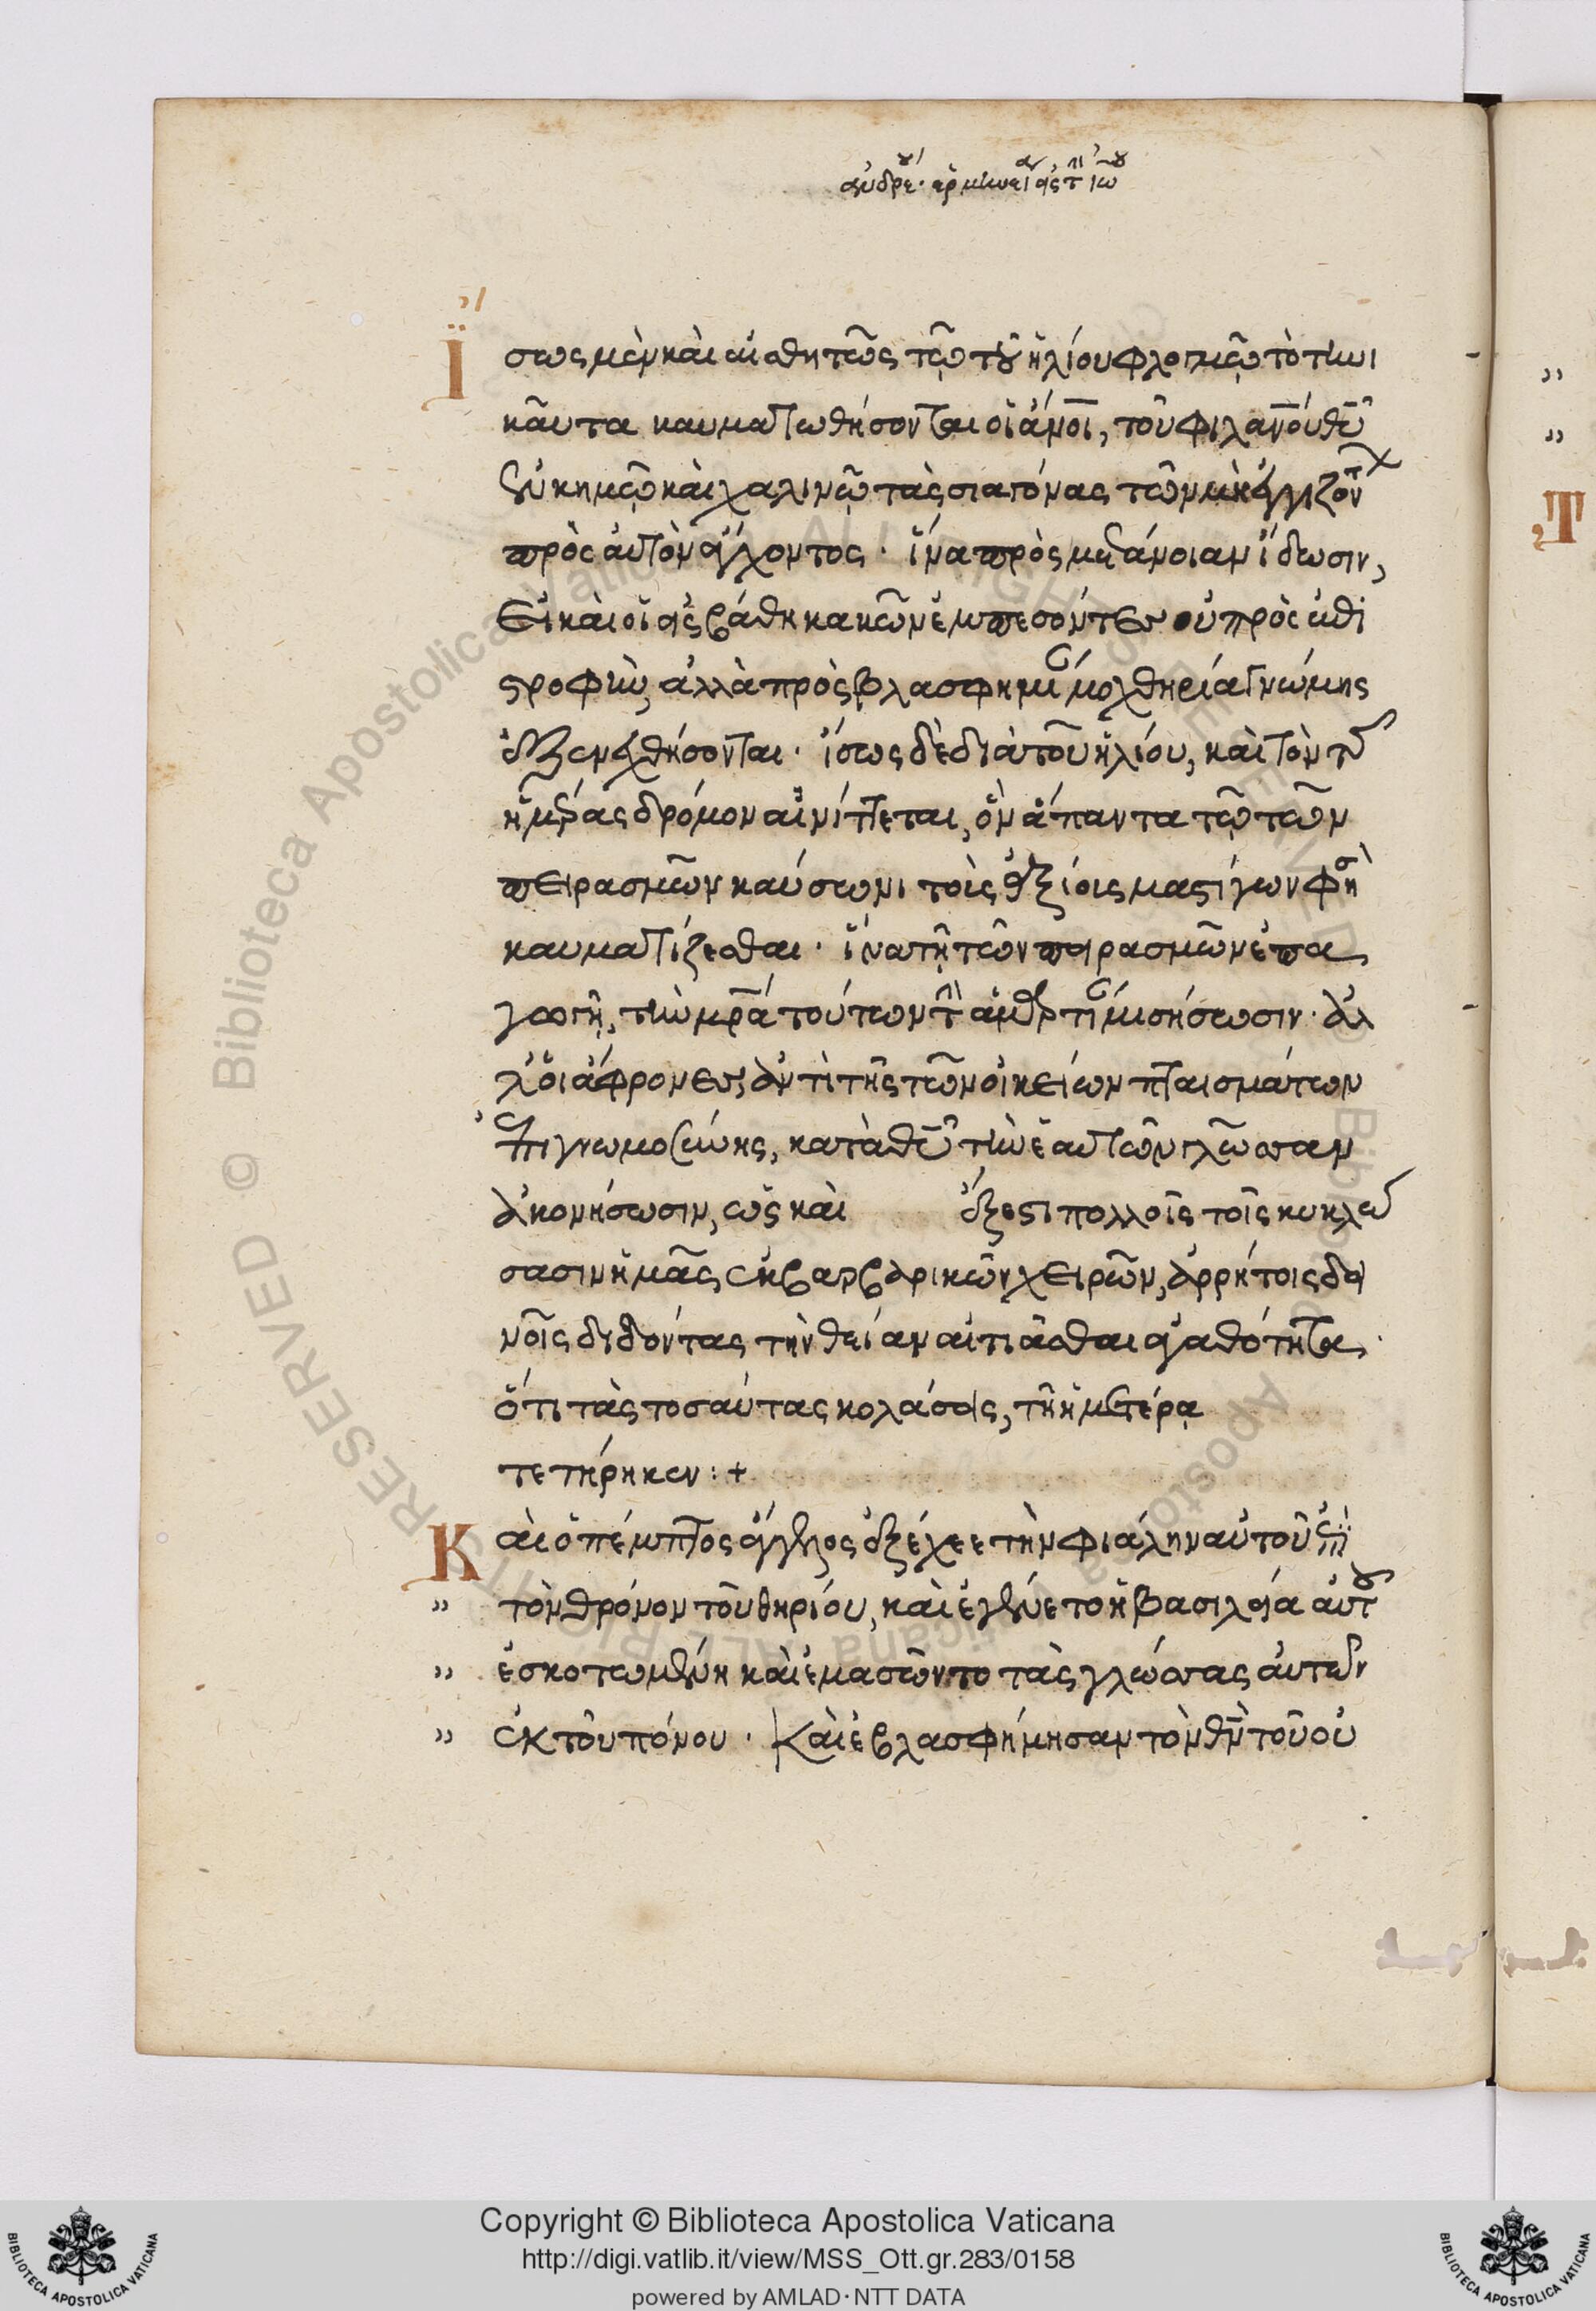 ἀνδρέου ἑρμηνεία εἰς τὴν ἰωάννου
Ἴσως μὲν καὶ αἰσθητῶς τῷ τοῦ ἡλίου φλογμῷ τὸ τηνι
καῦτα καυματωθήσονται οἱ ἄνοι, τοῦ φιλανου θῦ
ἐν κημῷ καὶ χαλινῷ τὰς σιαγόνας τῶν μὴ ἐγγιζόντων
πρὸς αὐτὸν ἄγχοντος· ἵνα πρὸς μετάνοιαν ἴδωσιν,
εἰ καὶ οἱ εἰς βάθη κακῶν ἐμπεσόντες οὐ πρὸς ἐπι
στροφὴν, ἀλλὰ πρὸς βλασφημίαν μοχθηρία γνώμης
ἐξενεχθήσονται· ἴσως δὲ διὰ τοῦ ἡλίου, καὶ τὸν τῆς
ἡμέρας δρόμον αἰνίττεται, ὃν ἅπαντα τῷ τῶν
πειρασμῶν καύσωνι τοὺς ἀξίους μαστίγων φησὶ
καυματίζεσθαι· ἵνα τῇ τῶν πειρασμῶν ἐπα
γωγῇ, τὴν μρα τούτων τὴν ἁμαρτίαν μισήσωσιν· ἀλ
λ' οἱ ἄφρονες, ἀντὶ τῆς τῶν οἰκείων πταισμάτων
ἐπιγνωμοσύνης, κατὰ θῦ τὴν ἑαυτῶν γλῶσσαν
ἀκονήσωσιν, ὡς καὶ ἔξεστι πολλοῖς τοῖς κυκλω
σασιν ἡμᾶς ἐκ βαρβαρικῶν χειρῶν, ἀρρήτοις δει
νοῖς διδόντας τὴν θείαν αἰτιᾶσθαι ἀγαθότητα,
ὅτι τὰς τοσαύτας κολάσεις, τῇ ἡμετέρᾳ
τετήρηκεν:+
Καὶ ὁ πέμπτος ἄγγελος ἐξέχεε τὴν φιάλην αὐτοῦ ἐπὶ
" τὸν θρόνον τοῦ θηρίου, καὶ ἐγένετο ἡ βασιλεία αὐτοῦ
" ἐσκοτωμένη καὶ ἐμασῶντο τὰς γλώσσας αὐτῶν
" ἐκ τοῦ πόνου· Καὶ ἐβλασφήμησαν τὸν θν τοῦ οὐ
Copyright © Biblioteca Apostolica Vaticana
http://digi.vatlib.it/view/MSS_Ott.gr.283/0158
powered by AMLAD·NTT DATA